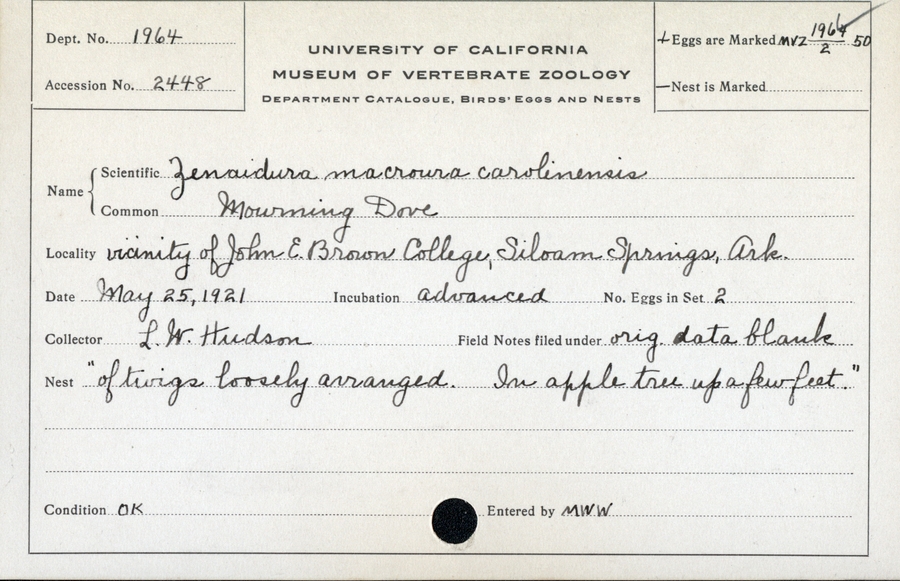 Dept. No. 1964
Accession No. 2448
UNIVERSITY OF CALIFORNIA
MUSEUM OF VERTEBRATE ZOOLOGY
DEPARTMENT CATALOGUE, BIRDS' EGGS AND NESTS
+ Eggs are Marked MVZ 1964/2 50
— Nest is Marked
Name { Scientific Zenaidura macroura carolinensis
Common Mourning Dove
Locality vicinity of John E. Brown College, Siloam Springs, Ark.
Date May 25, 1921 Incubation advanced No. Eggs in Set 2
Collector L. W. Hudson Field Notes filed under orig. data blank
Nest "of twigs loosely arranged. In apple tree up a few feet."
Condition OK Entered by MWW